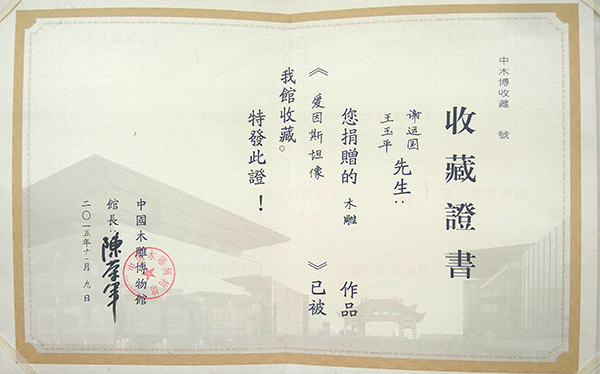 中木博收藏 號
收藏證書
谢运国
王玉平 先生：
您捐贈的 木雕 作品
《爱因斯坦像 》已被
我館收藏。
特發此證！
中國木雕博物館
館長：陳荣军
二〇一五年十一月 九 日